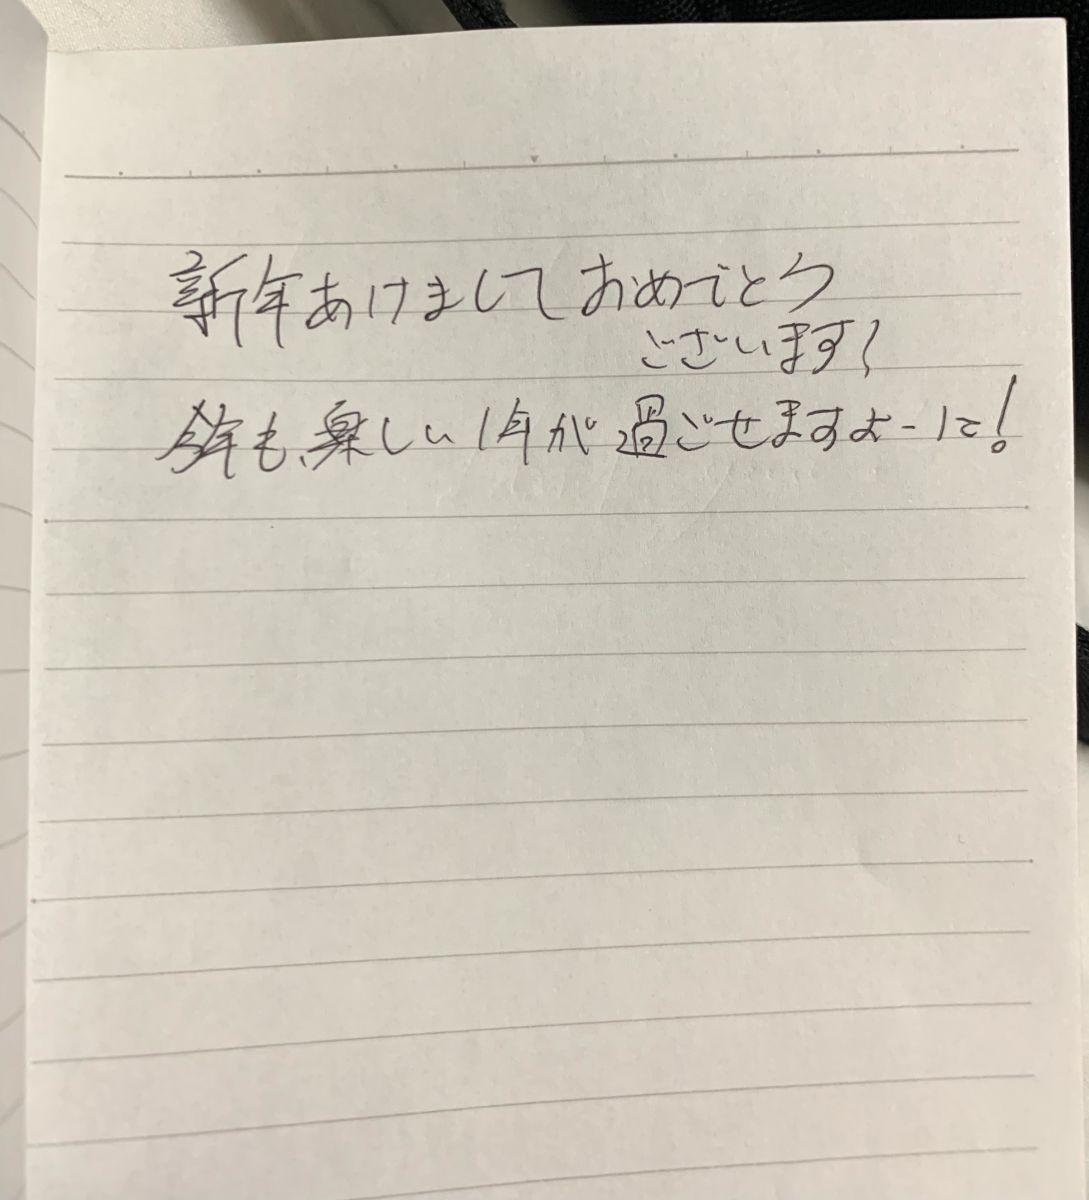 新年あけましておめでとう
ございます!
今年も、楽しい1年が過ごせますよーに!